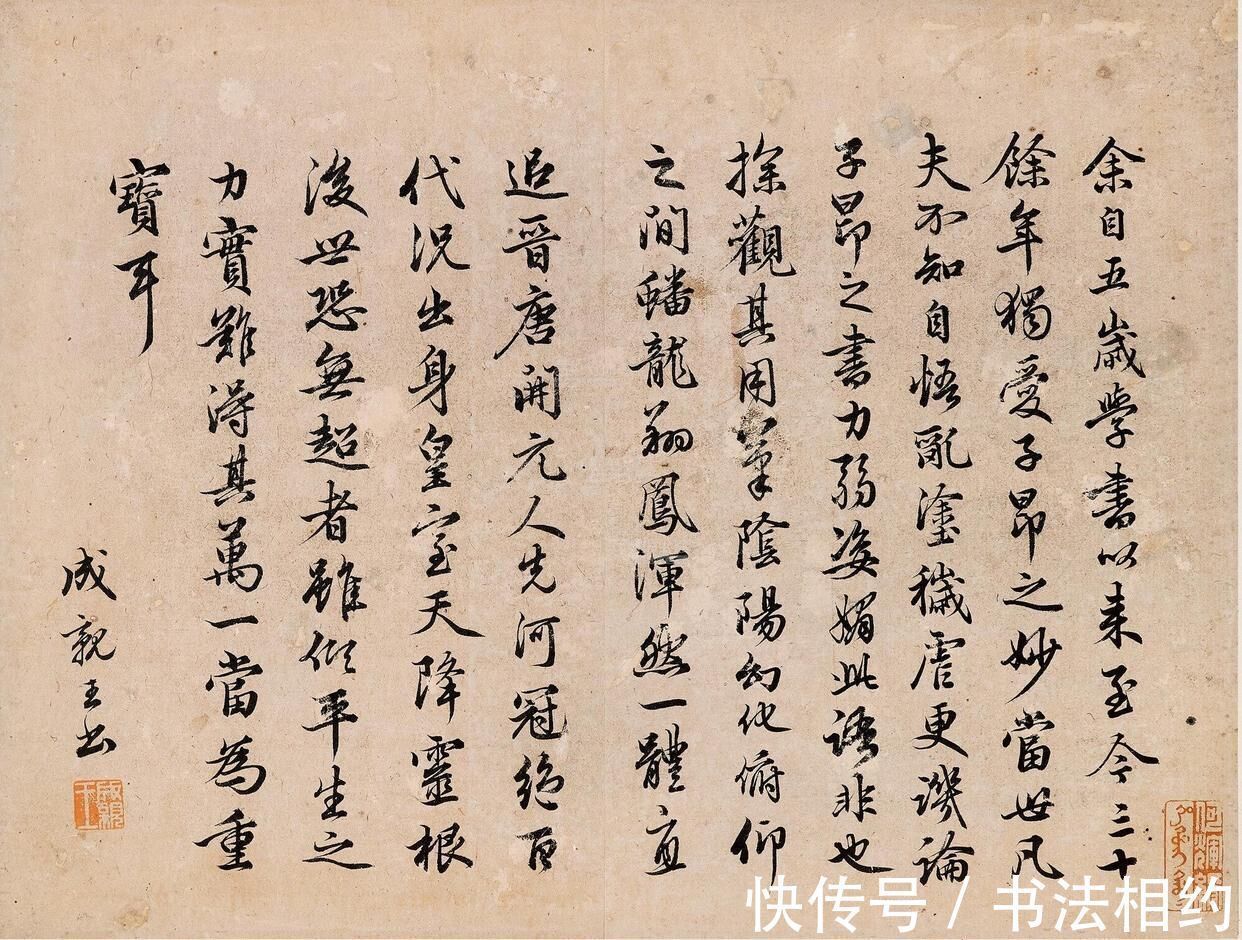 余自五歲學書以来至今三十
餘年獨愛子昂之妙當世凡
夫不知自悟亂塗穢虐更譏論
子昂之書力弱姿媚此語非也
探觀其用筆陰陽幻化俯仰
之間蟠龍翔鳳渾然一體直
追晉唐開元人先河冠絕百
代況出身皇室天降靈根
後世恐無超者雖傾平生之
力實難得其萬一當為重
寶耳
成親王書
成親王
快传号 / 书法相约